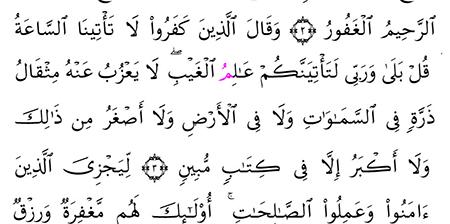 ٱلرَّحِيمُ ٱلۡغَفُورُ ۝٢ وَقَالَ ٱلَّذِينَ كَفَرُواْ لَا تَأۡتِينَا ٱلسَّاعَةُۖ
قُلۡ بَلَىٰ وَرَبِّي لَتَأۡتِيَنَّكُمۡ عَٰلِمُ ٱلۡغَيۡبِۖ لَا يَعۡزُبُ عَنۡهُ مِثۡقَالُ
ذَرَّةٖ فِي ٱلسَّمَٰوَٰتِ وَلَا فِي ٱلۡأَرۡضِ وَلَآ أَصۡغَرُ مِن ذَٰلِكَ
وَلَآ أَكۡبَرُ إِلَّا فِي كِتَٰبٖ مُّبِينٖ ۝٣ لِّيَجۡزِيَ ٱلَّذِينَ
ءَامَنُواْ وَعَمِلُواْ ٱلصَّٰلِحَٰتِۚ أُوْلَٰٓئِكَ لَهُم مَّغۡفِرَةٞ وَرِزۡقٞ